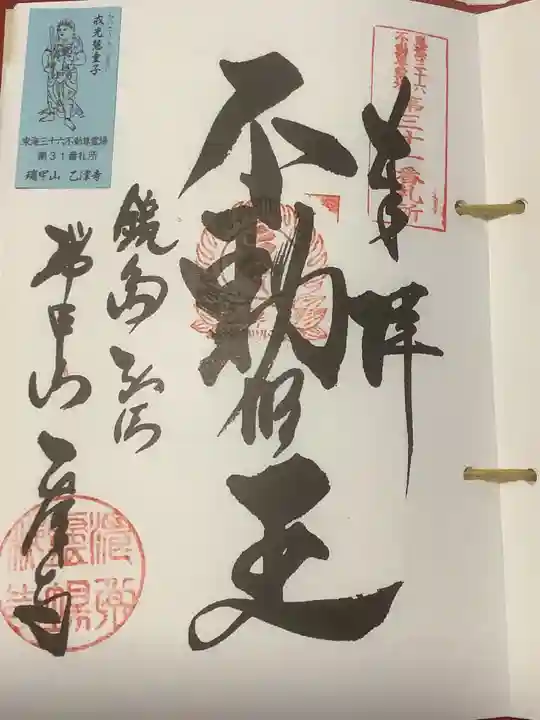 東海三十六不動尊霊場
第三十一番札所
奉拝
不動明王
鏡島弘法
瑞甲山 乙津寺
戒光慧童子
東海三十六不動尊霊場
第31番札所
瑞甲山 乙津寺